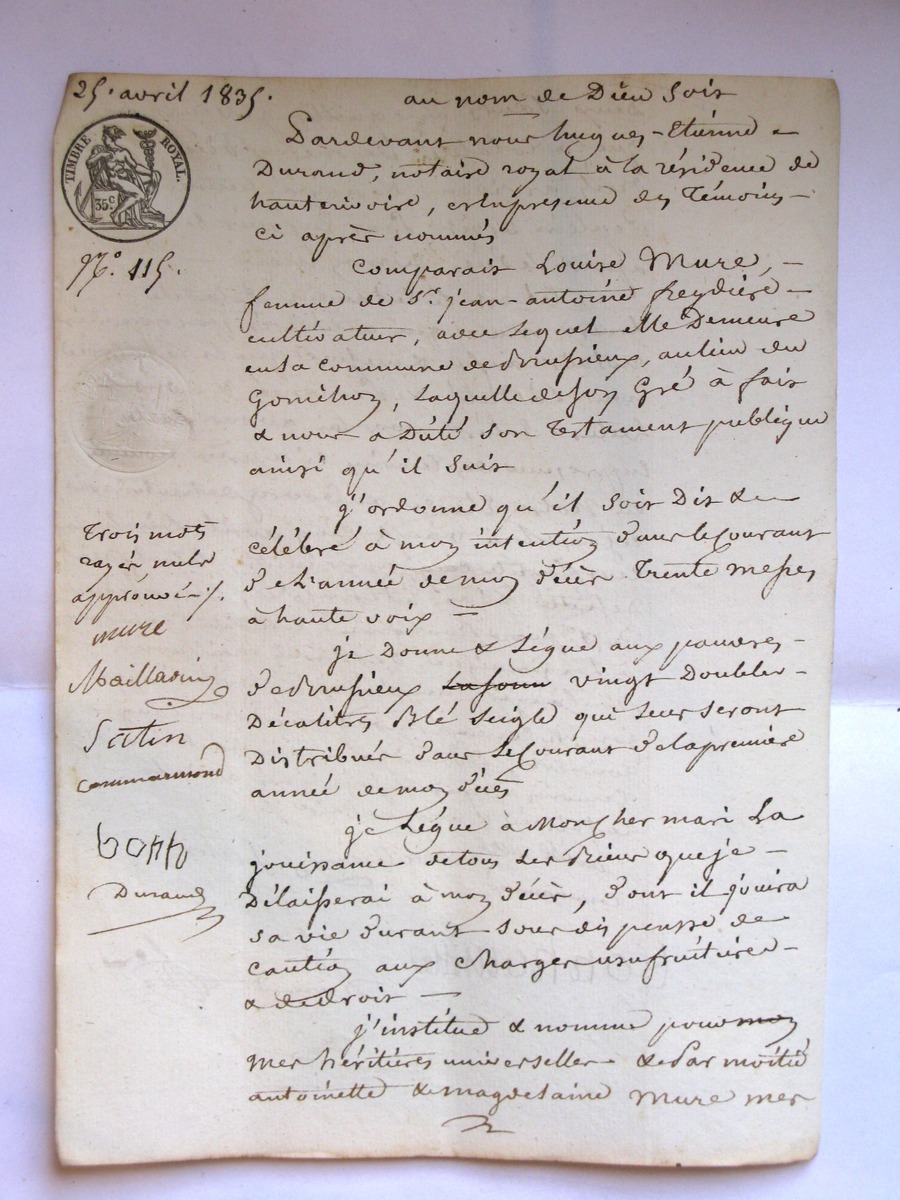 25. avril 1835.
au nom de Dieu soit
Pardevant nous hugues-Etienne
Durand, notaire royal à la résidence de
hauterivoire, et en presence des Témoins
ci après nommés
TIMBRE ROYAL.
35c
N.° 115.
Comparait Louise Mure,
femme de Sr. jean-antoine freydière
cultivateur, avec lequel elle Demeure
en la commune de brussieux, au lieu du
laquelle de son Gré à fait
& nous a Dicté son Testament publique
ainsi qu'il suit
j'ordonne qu'il soit Dit &
célébré à mon intention dans le courant
de l'année de mon décès Trente messes
à haute voix —
je Donne & Lègue aux pauvres
de brussieux vingt Doubles
Décalitres Blé seigle qui leur seront
Distribués dans le courant de la première
année de mon décès
je Lègue à Mon cher mari La
jouissance de tous les biens que je
Délaisserai à mon décès, dont il jouira
sa vie durant sous dispense de
caution aux charges usufruitière
& de droit —
j'institue & nomme pour mon
mes héritières universelles & par moitié
antoinette & magdelaine Mure mes
Trois mots
rayés nuls
approuvé ./.
mure
Satin
commarmond
Durand